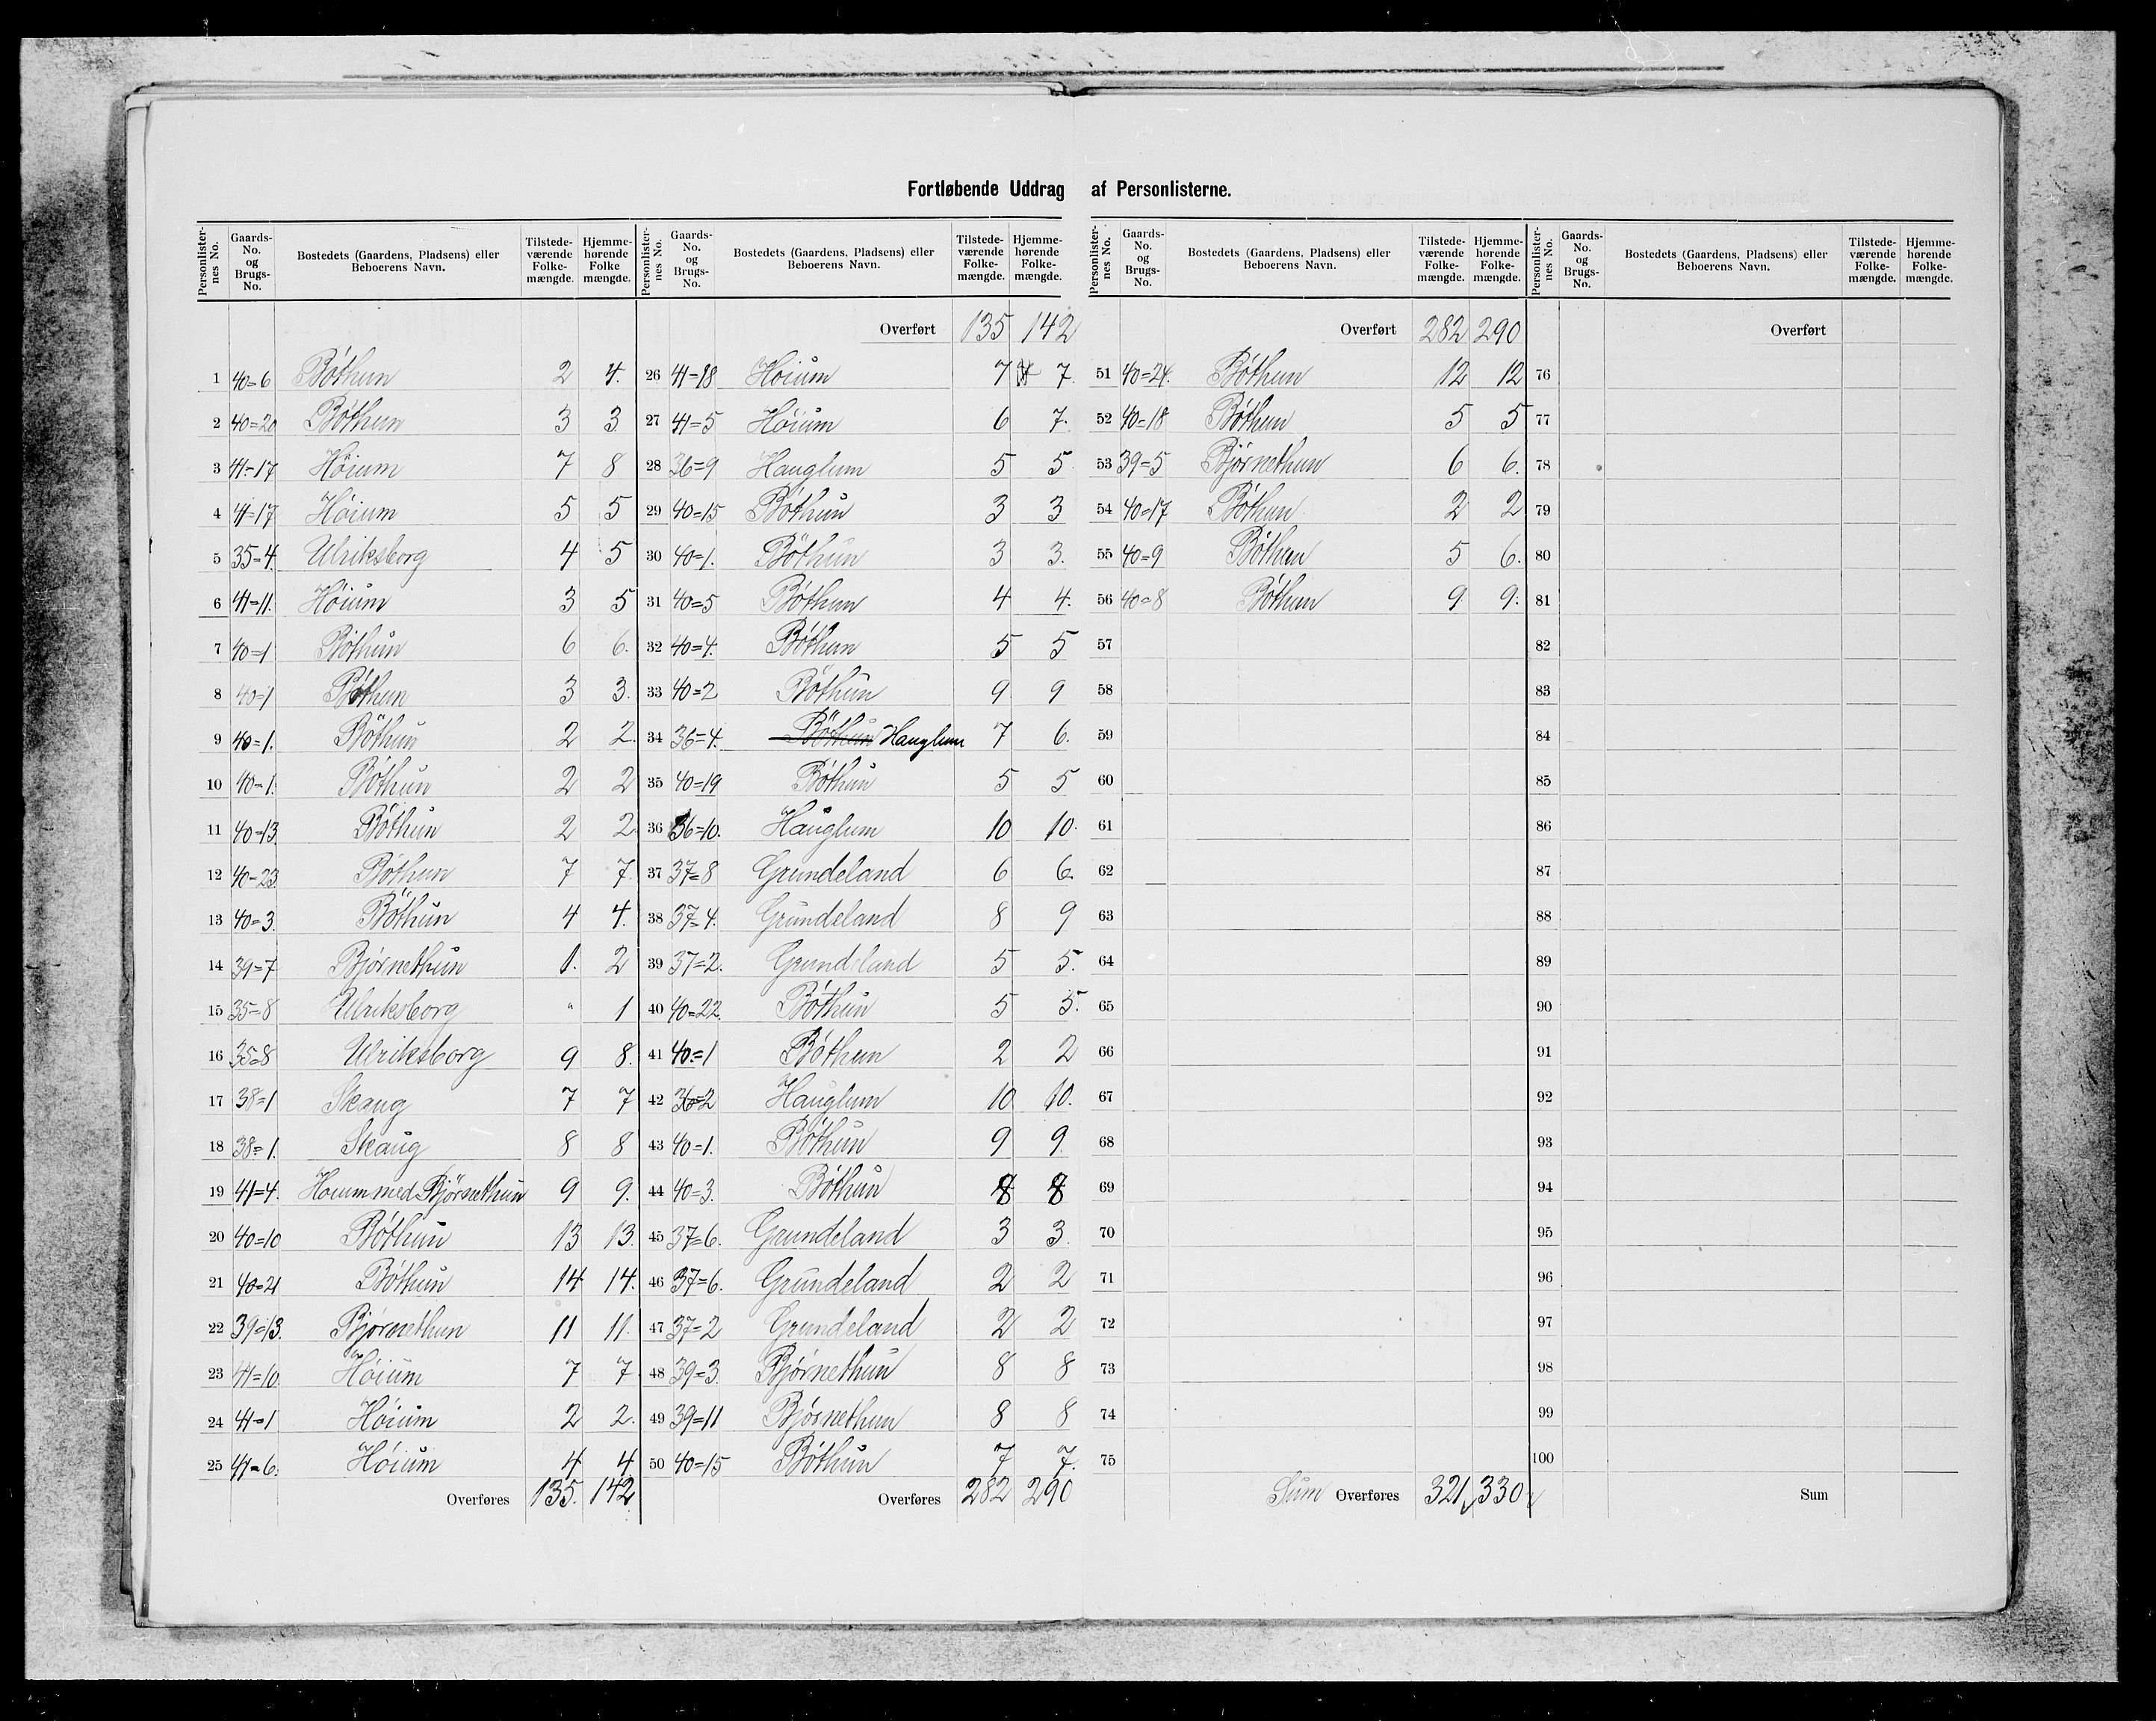 Fortløbende Uddrag af Personlisterne.
Personlister-nes No. Gaards-No. og Brugs-No. Bostedets (Gaardens, Pladsens) eller Beboerens Navn. Tilstede-værende Folke-mængde. Hjemme-hørende Folke mængde.
1 40=6 Bóthun 2 4.
2 40=20 Bóthun 3 3
3 41-17 Höium 7 8
4 41=17 Höium 5 5
5 35=4. Ulriksborg 4 5
6 41=11. Höium 3 5
7 40=1 Bóthun 6 6.
8 40=1 Bóthun 3 3.
9 40=1. Bóthun 2 2.
10 40=1. Bóthun 2 2
11 40=13. Bóthun 2 2
12 40-23. Bóthun 7 7.
13 40=3. Bóthun 4 4.
14 39=7 Bjórnethun 1. 2
15 35=8 Ulriksborg " 1
16 35=8 Ulriksborg 9 8.
17 38=1 Skaug 7 7
18 38=1. Skaug 8 8
19 41=4. Hoium med Bjórnethun 9 9.
20 40=10 Bóthun 13 13.
21 40=21 Bóthun 14 14.
22 39=13. Bjórnethun 11 11.
23 41=10. Hóium 7 7
24 41=1 Hóium 2 2.
25 41=6. Hóium 4 4
Overføres 135. 142
Personlister-nes No. Gaards-No. og Brugs-No. Bostedets (Gaardens, Pladsens) eller Beboerens Navn. Tilstede-værende Folke-mængde. Hjemme-hørende Folke-mængde.
Overført 135 142
26 41-18 Hóium 7 7.
27 41=5 Hóium 6 7.
28 36=9 Hauglum 5 5
29 40=15 Bóthun 3 3
30 40=1. Bóthun 3 3.
31 40=5 Bóthun 4 4.
32 40=4. Bóthun 5 5
33 40=2 Bóthun 9 9
34 36=4. Bóthun Hauglum 7 6.
35 40=19 Bóthun 5 5
36 36=10. Hauglum 10 10.
37 37=8 Grundeland 6 6.
38 37=4. Grundeland 8 9
39 37=2. Grundeland 5 5.
40 40=22. Bóthun 5 5.
41 40=1 Bóthun 2 2
42 36=2 Hauglum 10 10.
43 40=1. Bóthun 9 9.
44 40=3. Bóthun 8 8
45 37=6. Grundeland 3 3.
46 37=6. Grundeland 2 2
47 37=2 Grundeland 2 2
48 39=3. Bjórnethun 8 8
49 39=11 Bjórnethun 8 8
50 40=15 Bóthun 7 7.
Overføres 282 290
Personlister-nes No. Gaards-No. og Brugs-No. Bostedets (Gaardens, Pladsens) eller Beboerens Navn. Tilstede-værende Folke-mængde. Hjemme-hørende Folke-mængde.
Overført 282 290
51 40=24. Bóthun 12 12
52 40=18 Bóthun 5 5
53 39=5 Bjórnethun 6 6.
54 40=17 Bóthun 2 2
55 40=9 Bóthun 5 6.
56 40=8 Bóthun 9 9.
57
58
59
60
61
62
63
64
65
66
67
68
69
70
71
72
73
74
75
Sum Overføres 321 330
Personlister-nes No. Gaards-No. og Brugs-No. Bostedets (Gaardens, Pladsens) eller Beboerens Navn. Tilstede-værende Folke-mængde. Hjemme-hørende Folke-mængde.
Overført
76
77
78
79
80
81
82
83
84
85
86
87
88
89
90
91
92
93
94
95
96
97
98
99
100
Sum